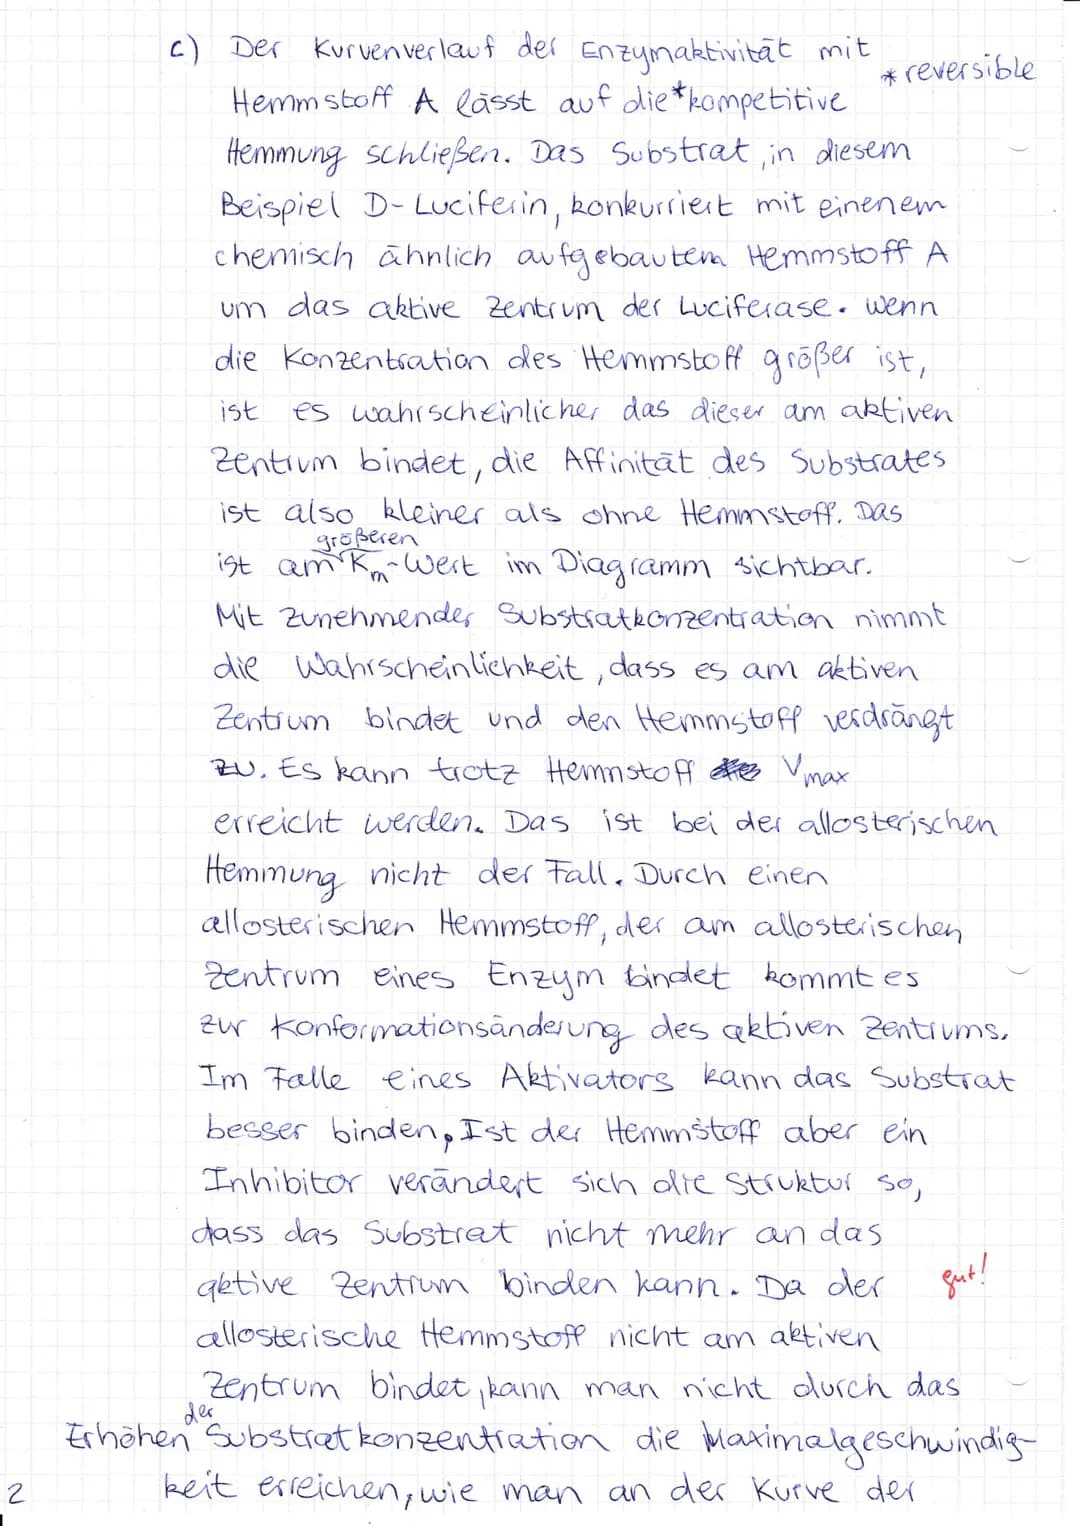 c) Der Kurvenverlauf der Enzymaktivität mit
* reversible
Hemmstoff A lässt auf die *kompetitive
Hemmung schließen. Das Substrat, in diesem
Beispiel D-Luciferin, konkurriert mit einenem
chemisch ähnlich aufgebautem Hemmstoff A
um das aktive Zentrum der Luciferase. Wenn
die Konzentration des Hemmstoff größer ist,
ist es wahrscheinlicher das dieser am aktiven
Zentrum bindet, die Affinität des Substrates
ist also kleiner als ohne Hemmstoff. Das
größeren
ist am Km-Wert im Diagramm sichtbar.
Mit zunehmender Substratkonzentration nimmt
die Wahrscheinlichkeit, dass es am aktiven
Zentrum bindet und den Hemmstoff verdrängt
zu. Es kann trotz Hemmstoff Vmax
erreicht werden. Das ist bei der allosterischen
Hemmung nicht der Fall. Durch einen
allosterischen Hemmstoff, der am allosterischen
Zentrum eines Enzym bindet kommt es
zur Konformationsänderung des aktiven Zentrums.
Im Falle eines Aktivators kann das Substrat
besser binden, Ist der Hemmstoff aber ein
Inhibitor verändert sich die Struktur so,
dass das Substrat nicht mehr an das
aktive Zentrum binden kann. Da der
gut!
allosterische Hemmstoff nicht am aktiven
Zentrum bindet, kann man nicht durch das
der
Erhöhen Substratkonzentration die Maximalgeschwindig-
keit erreichen, wie man an der Kurve der
2